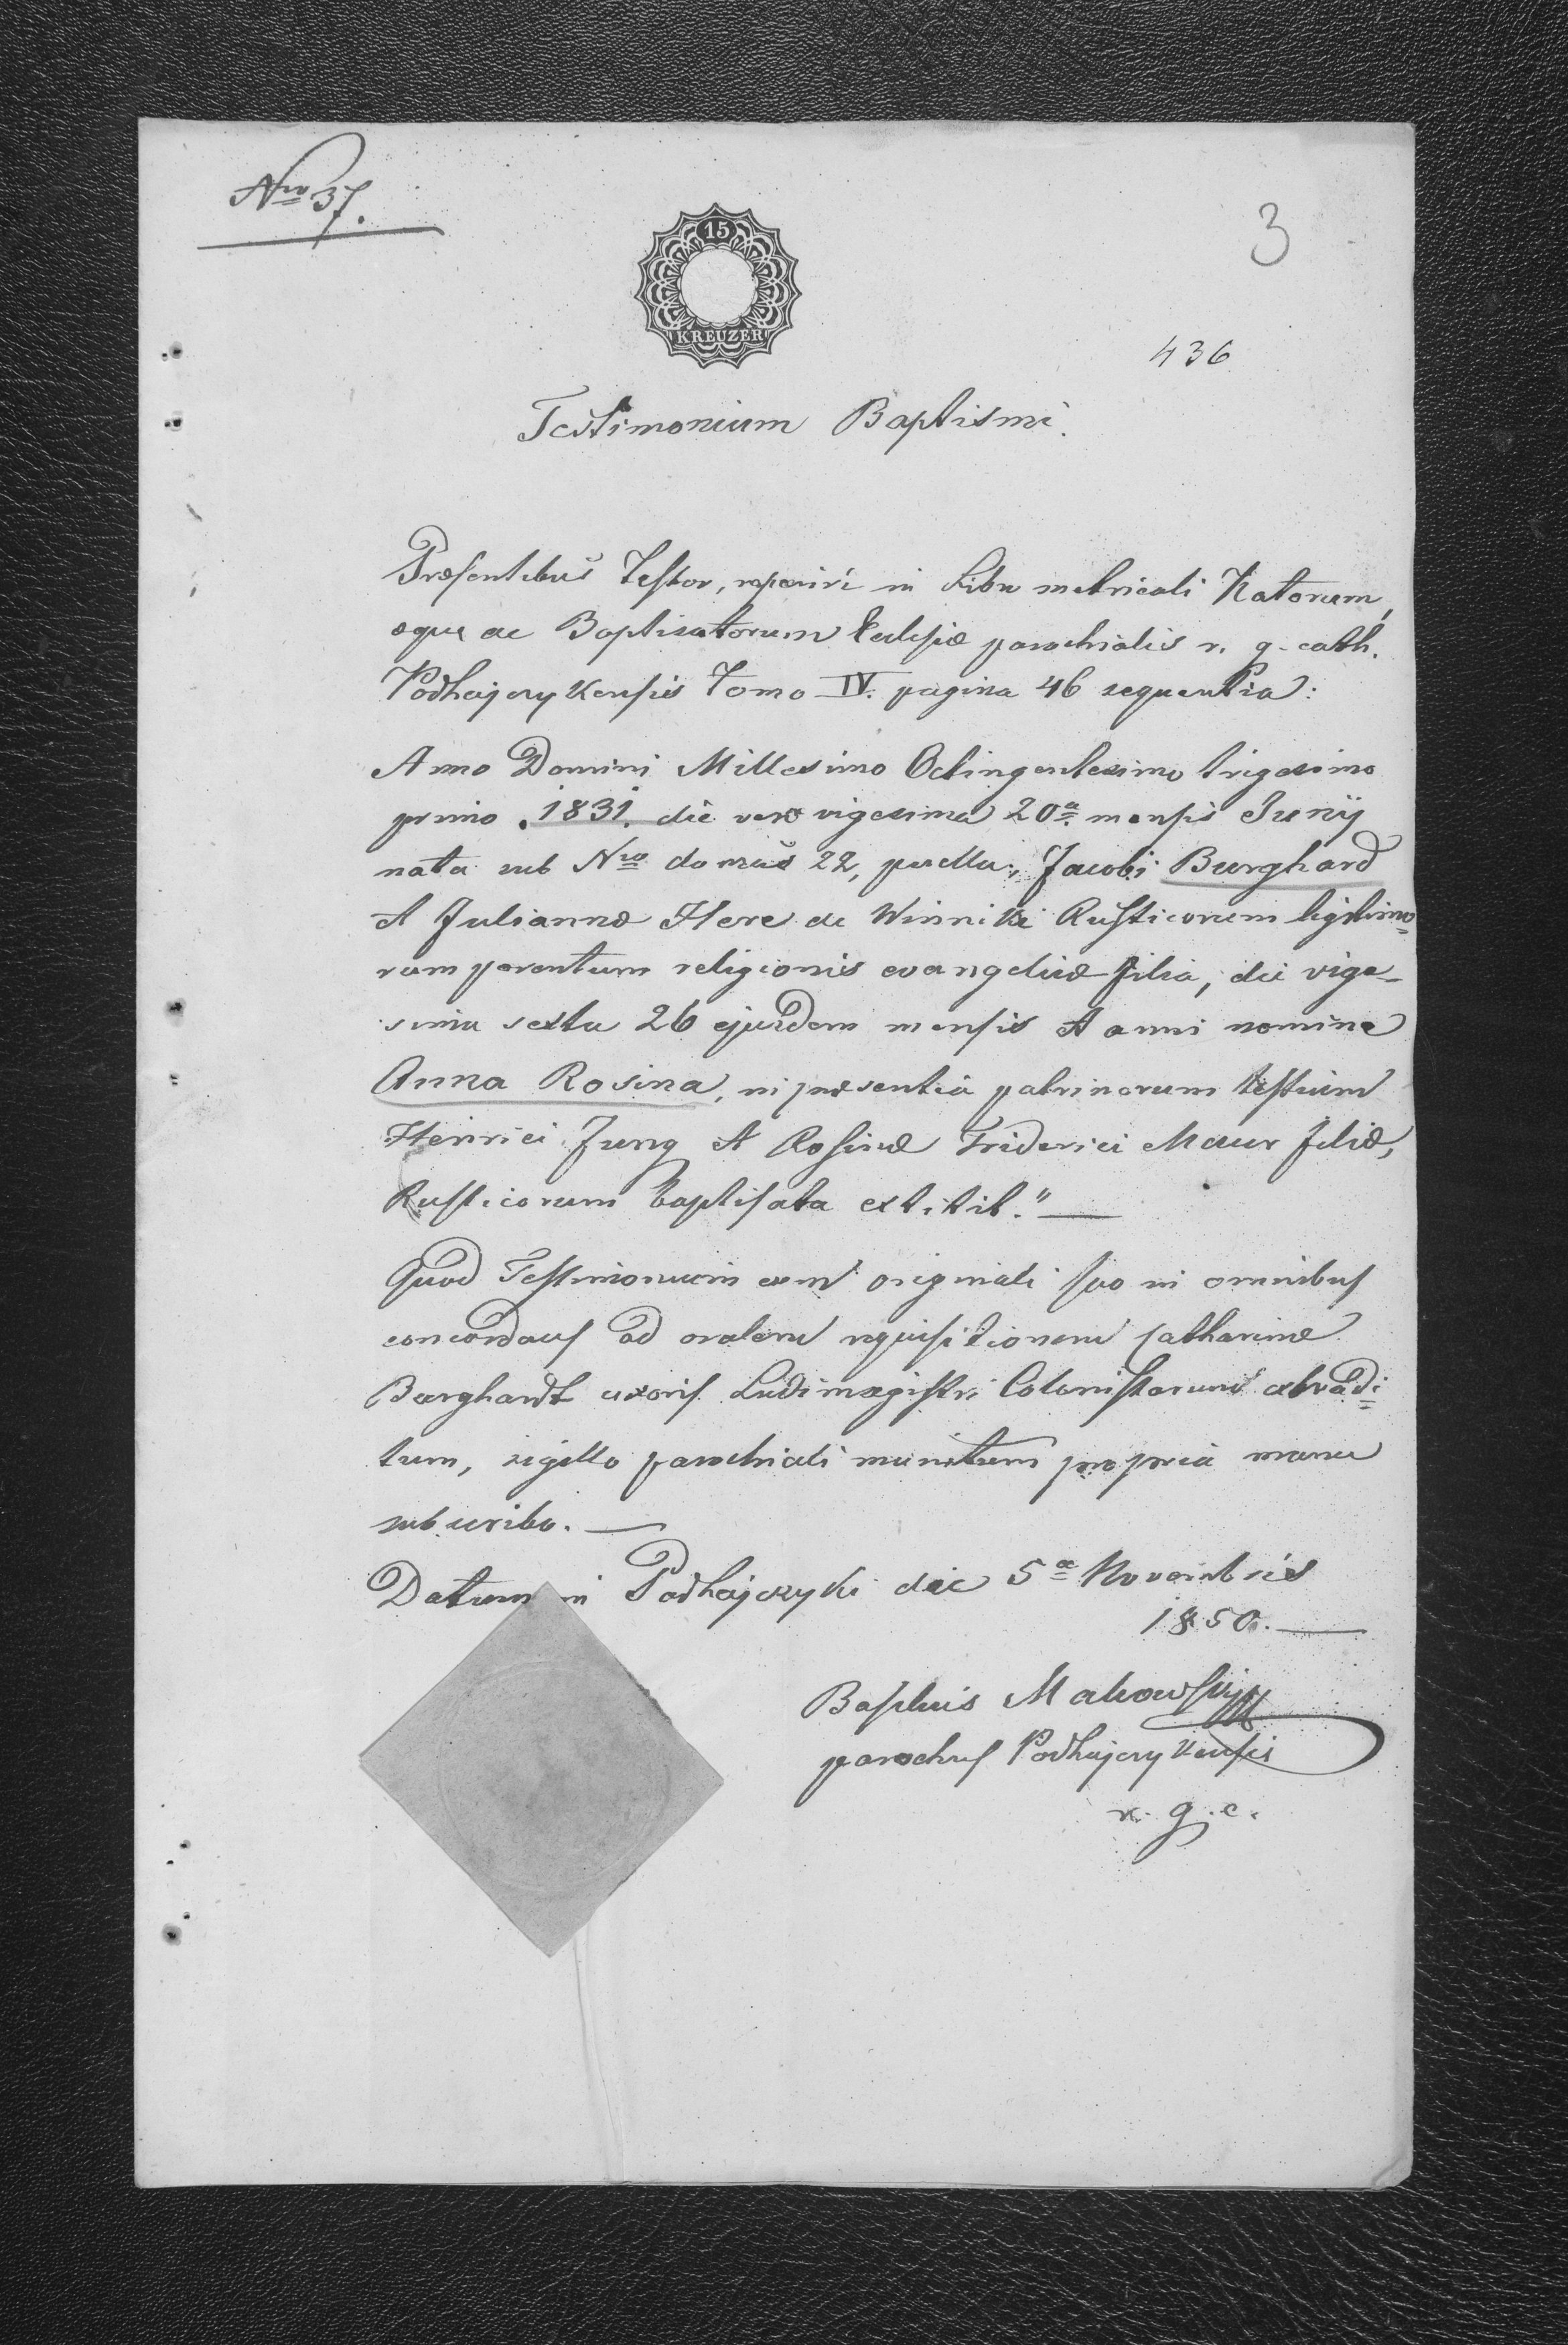 Nro 37.
3
15
KREUZER
436
Testimonium Baptismi.
Præsentibus Testor, reperiri in Libro metricali Natorum,
æque ac Baptisatorum Eclesiæ parochialis r. g. cath.
Podhajczykensis Tomo IV. pagina 46 sequentia:
Anno Domini Millesimo Octingentesimo trigesimo
primo 1831. die vero vigesima 20a mensis Junij
nata sub Nro domus 22, puella, Jacobi Burghard
et Juliannæ Here de Winniki Rusticorum legitimo=
rum parentum religionis evangelicæ filia, die vige-
sima sexta 26 ejusdem mensis et anni nomine
Anna Rosina, in præsentia patrinorum testium
Henrici Jung et Rosinæ Friderici Maur filiæ,
Rusticorum baptisata extitit."
Quod Testimonium cum originali suo in omnibus
concordans ad oralem requisitionem Catharinæ
Burghardt uxoris Ludimagistri Colonistarum extradi=
tum, sigillo parochiali munitum propria manu
subscribo.
Datum in Podhajczyki die 5a Novembris
1850.
Basilius Makowsky
parochus Podhajczykensis
r. g. c.